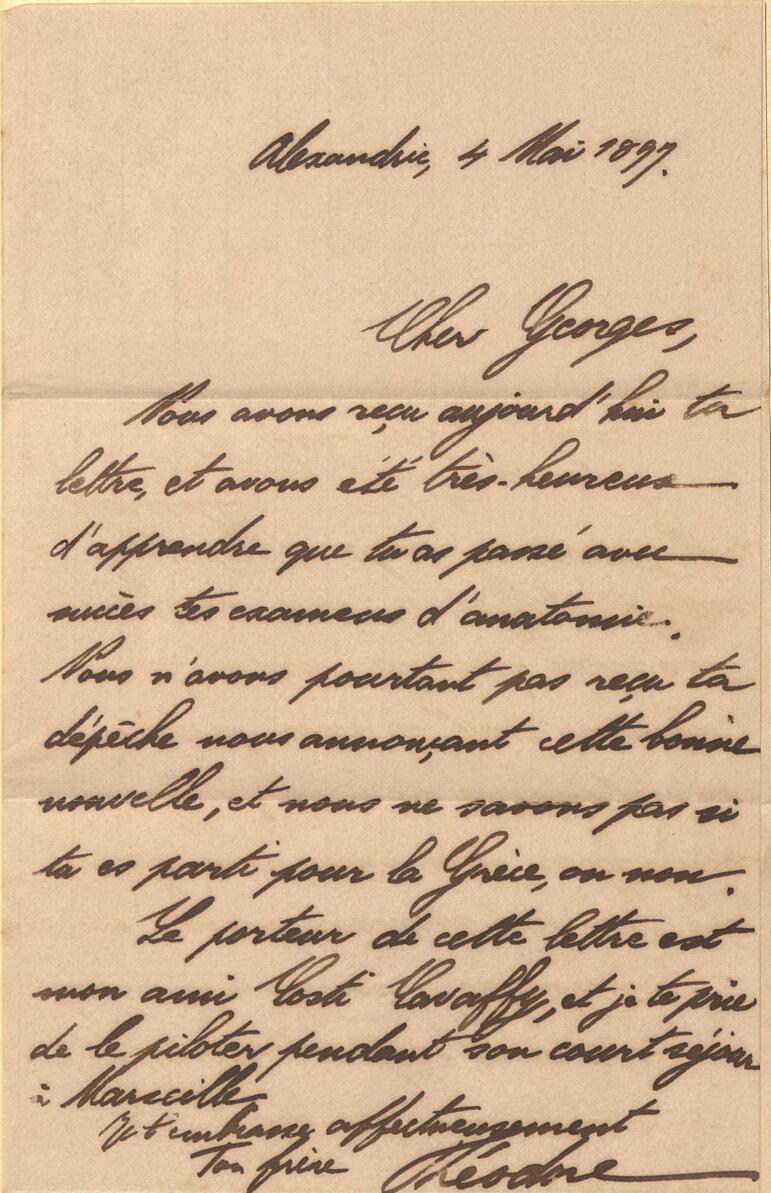 Alexandrie, 4 Mai 1897.
Cher Georges,
Nous avons reçu aujourd'hui ta
lettre, et avons été très-heureux
d'apprendre que tu as passé avec
succès tes examens d'anatomie.
Nous n'avons pourtant pas reçu ta
dépêche nous annonçant cette bonne
nouvelle, et nous ne savons pas si
tu es parti pour la Grèce, ou non.
Le porteur de cette lettre est
mon ami Costi Cavaffy, et je te prie
de le piloter pendant son court séjour
à Marseille
Je t'embrasse affectueusement
Ton frère Théodore